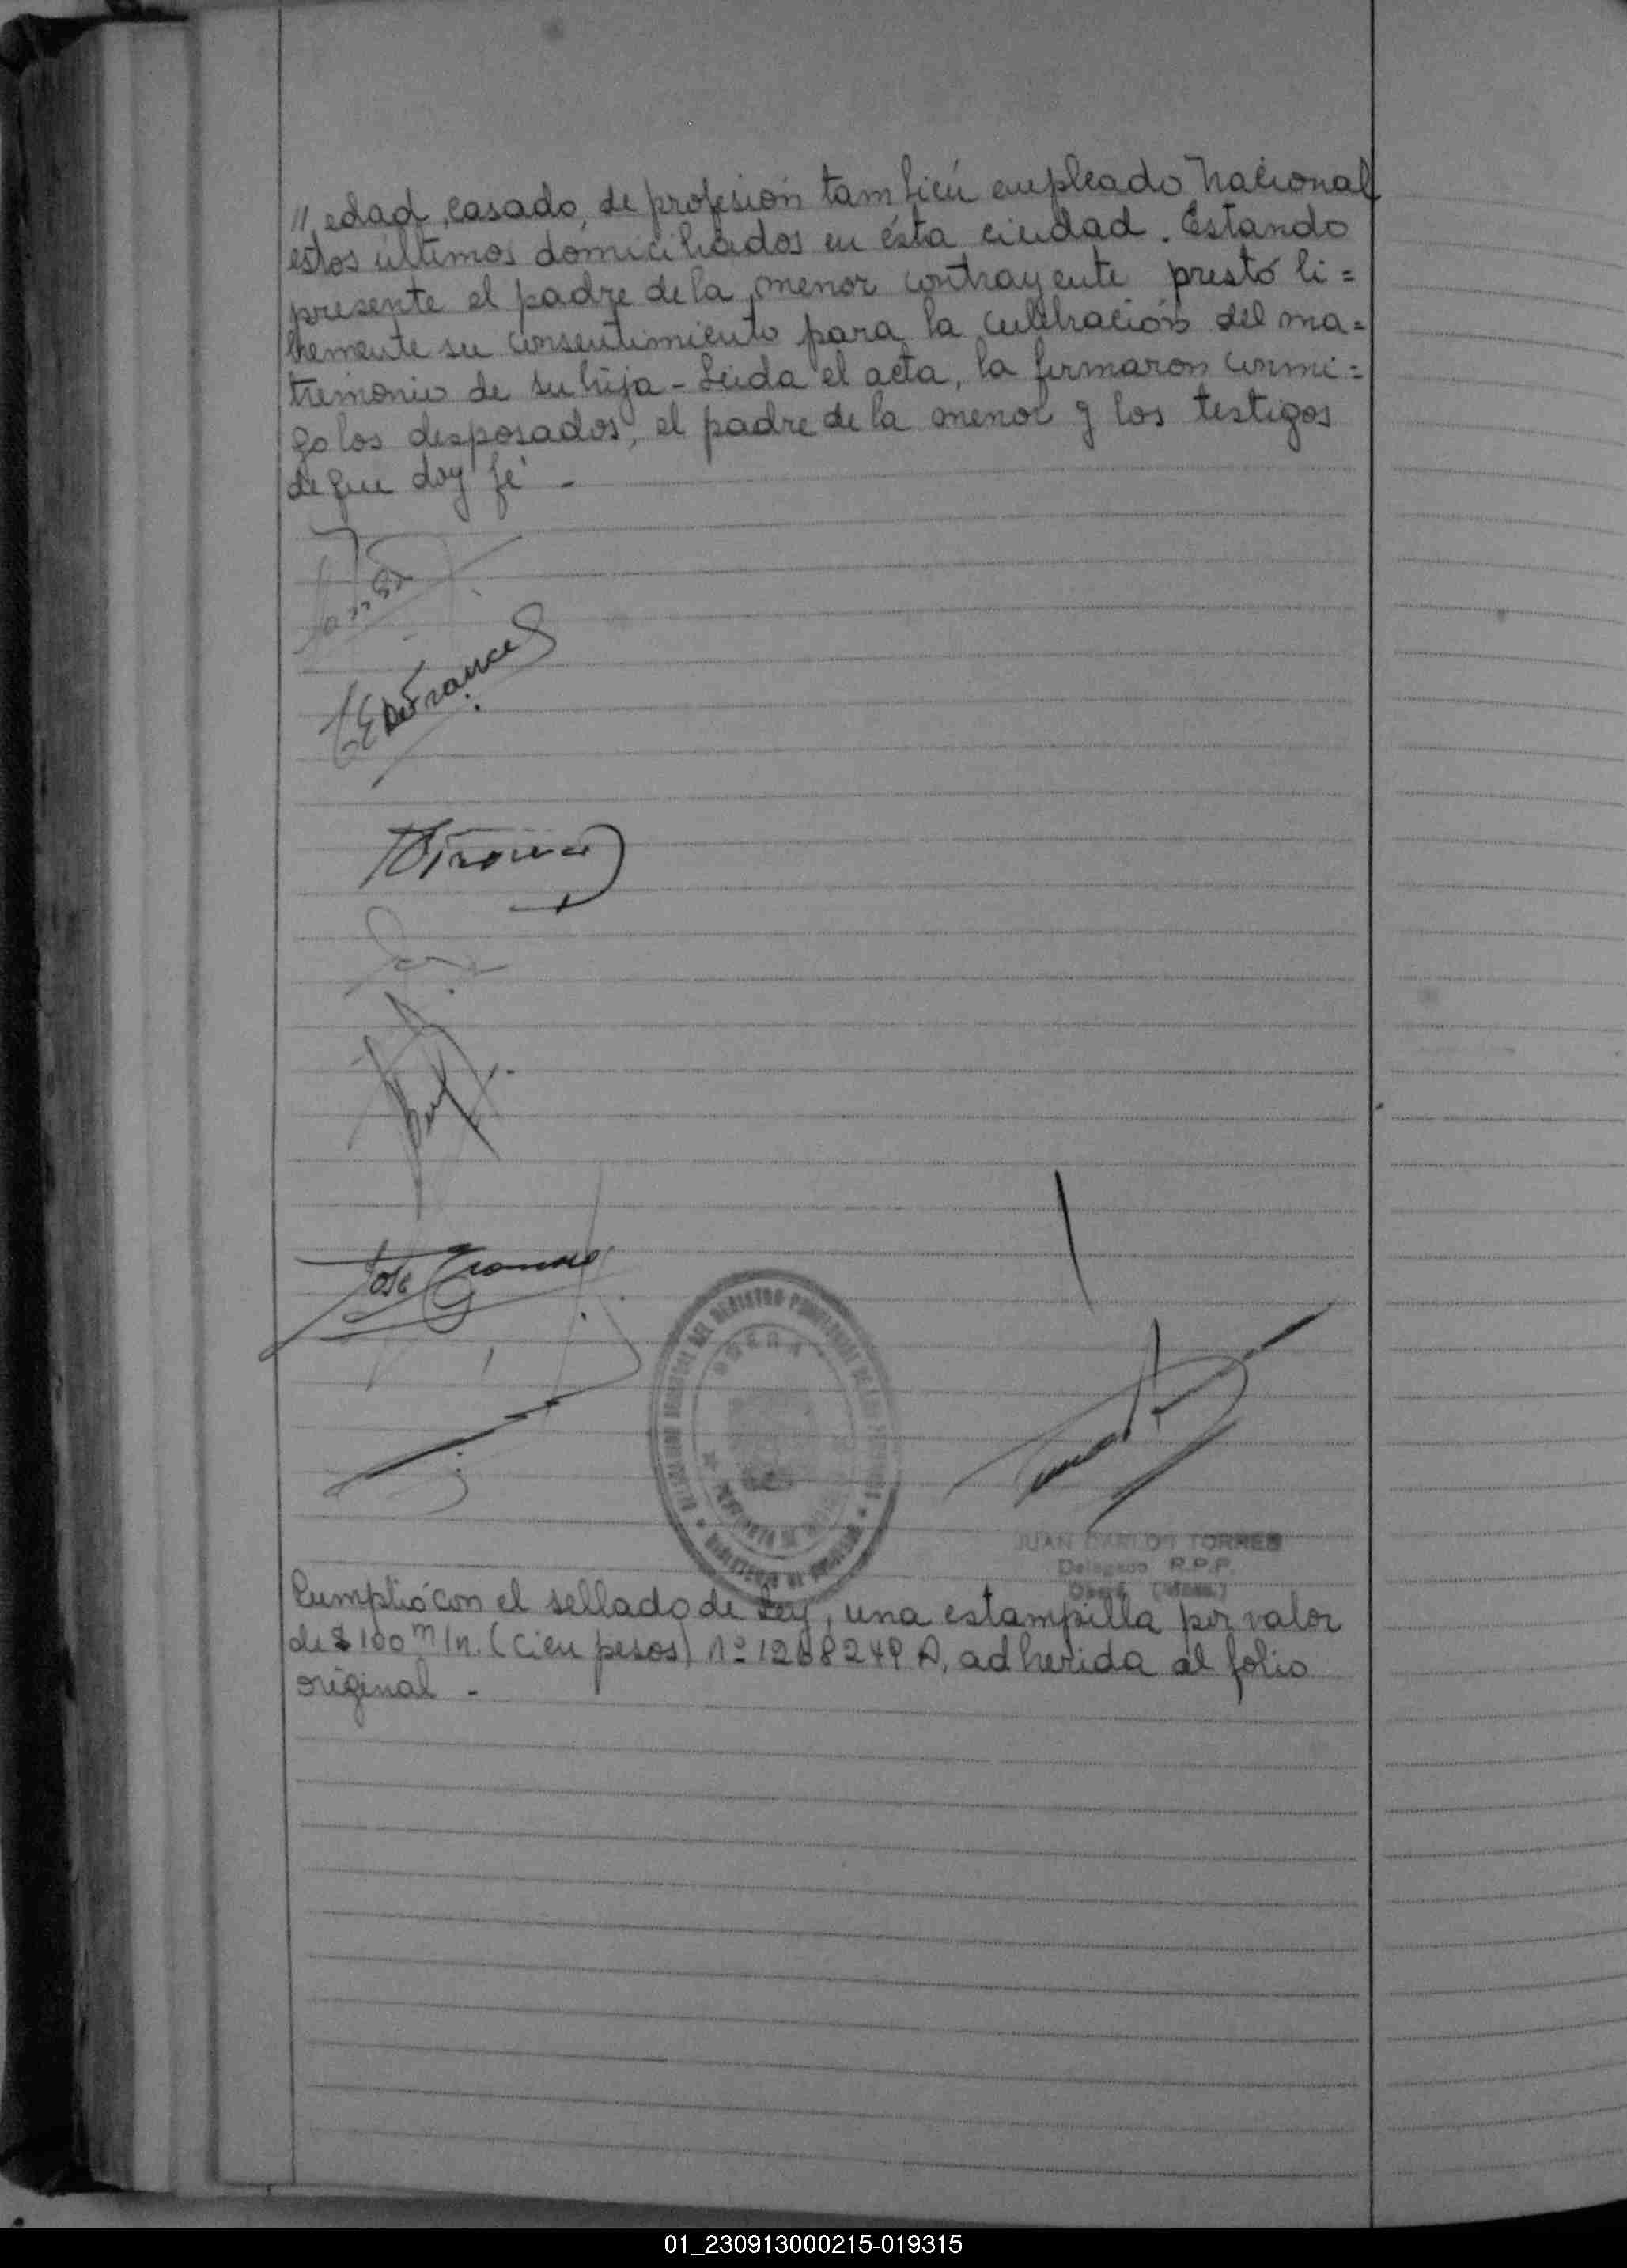 // edad, casado, de profesión también empleado Nacional
estos últimos domiciliados en ésta ciudad. Estando
presente el padre de la menor contrayente prestó li=
bremente su consentimiento para la celebración del ma=
trimonio de su hija - Leída el acta, la firmaron conmi=
go los desposados, el padre de la menor y los testigos
de que doy fé -
José
JUAN CARLOS TORRES
Delegado R.P.P.
Cumplió con el sellado de Ley, una estampilla por valor
de $ 100 m/n. (cien pesos) Nº 1268249 A, adherida al folio
original -
01_230913000215-019315